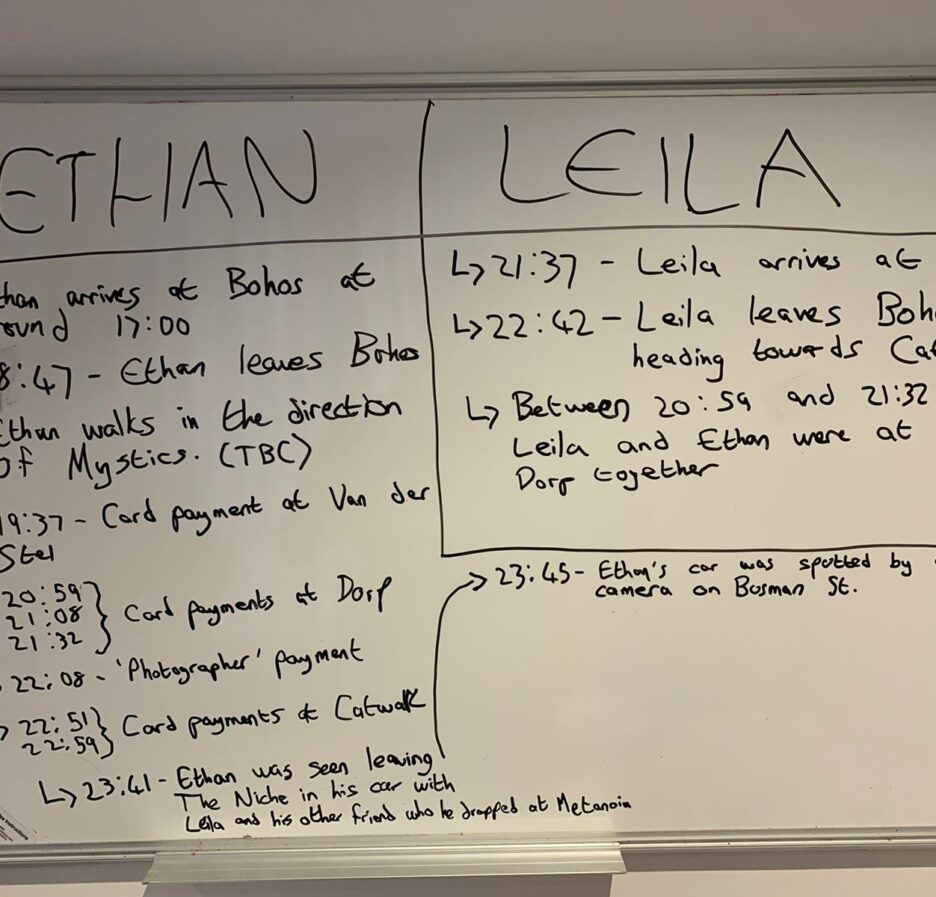 ETHAN
than arrives at Bohos at
ound 17:00
8:47 - Ethan leaves Bohos
Ethan walks in the direction
of Mystics. (TBC)
19:37 - Card payment at Van der
Stel
20:59
21:08
21:32
Card payments at Dorp
22:08 - 'Photographer' payment
22:51
22:59
Card payments at Catwalk
↳ 23:41 - Ethan was seen leaving
The Niche in his car with
Leila and his other friend who he dropped at Metanoia
LEILA
↳ 21:37 - Leila arrives at
↳ 22:42 - Leila leaves Boh
heading towards Ca
↳ Between 20:59 and 21:32
Leila and Ethan were at
Dorp together
→ 23:45 - Ethan's car was spotted by
camera on Bosman St.